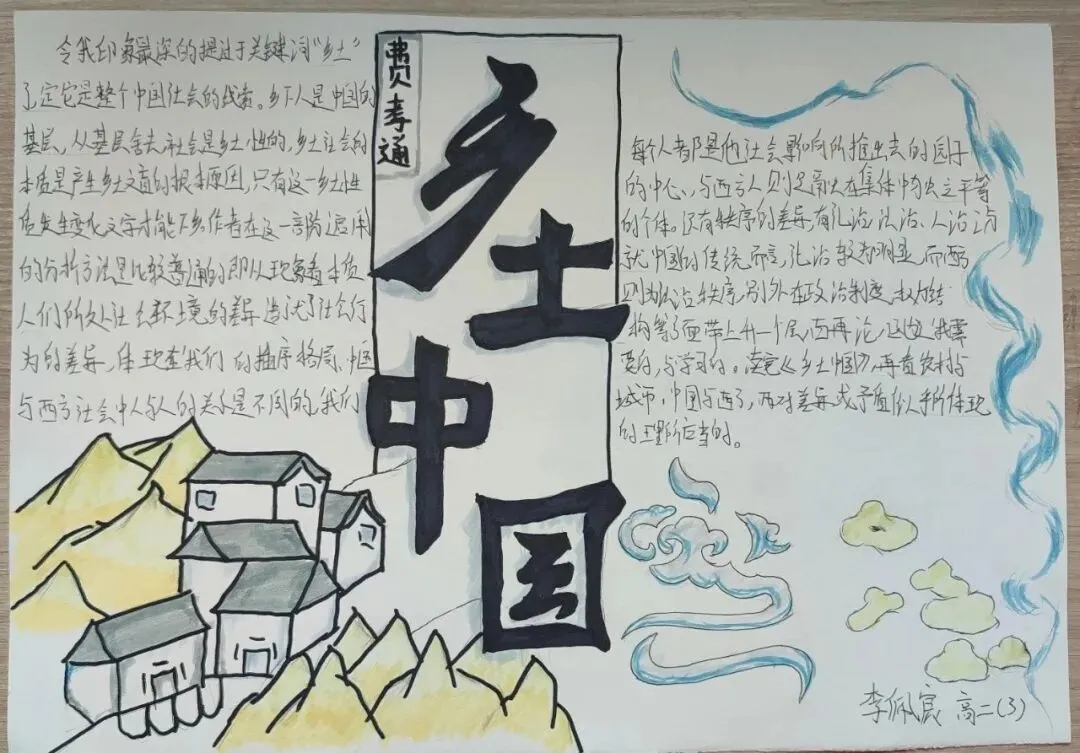 令我印象最深的提过于关键词“乡土”
了,定它是整个中国社会的线索。乡下人是中国的
基层,从基层舍去,社会是乡土性的,乡土社会的
本质是产生乡土文盲的根本原因,只有这一乡土性
质发生变化文字才能下乡作者在这一部阶遍用
的分析方法是比较普通的即从现象看本质
人们所处社会环境的差异造就了社会行
为的差异,体现在我们的差序格局,中国
与西方社会中人与人的关系是不同的,我们
费孝通
乡土
中国
每个人都是他社会影响所推出去的圈子
的中心,与西方人则是 在集体中 平等
的个体。还有秩序的差异,有礼治、法治、人治之
就中国的传统而言,礼治较为明显,而西
则为法治秩序,另外在政治制度、权力结
构等方面带上升一个层面再论,这是我
要 的,与学习的。读完《乡土中国》,再看农村与
城市,中国与西方,两对差异或矛盾似乎所体现
的理所应当的。
李佩宸 高二(3)